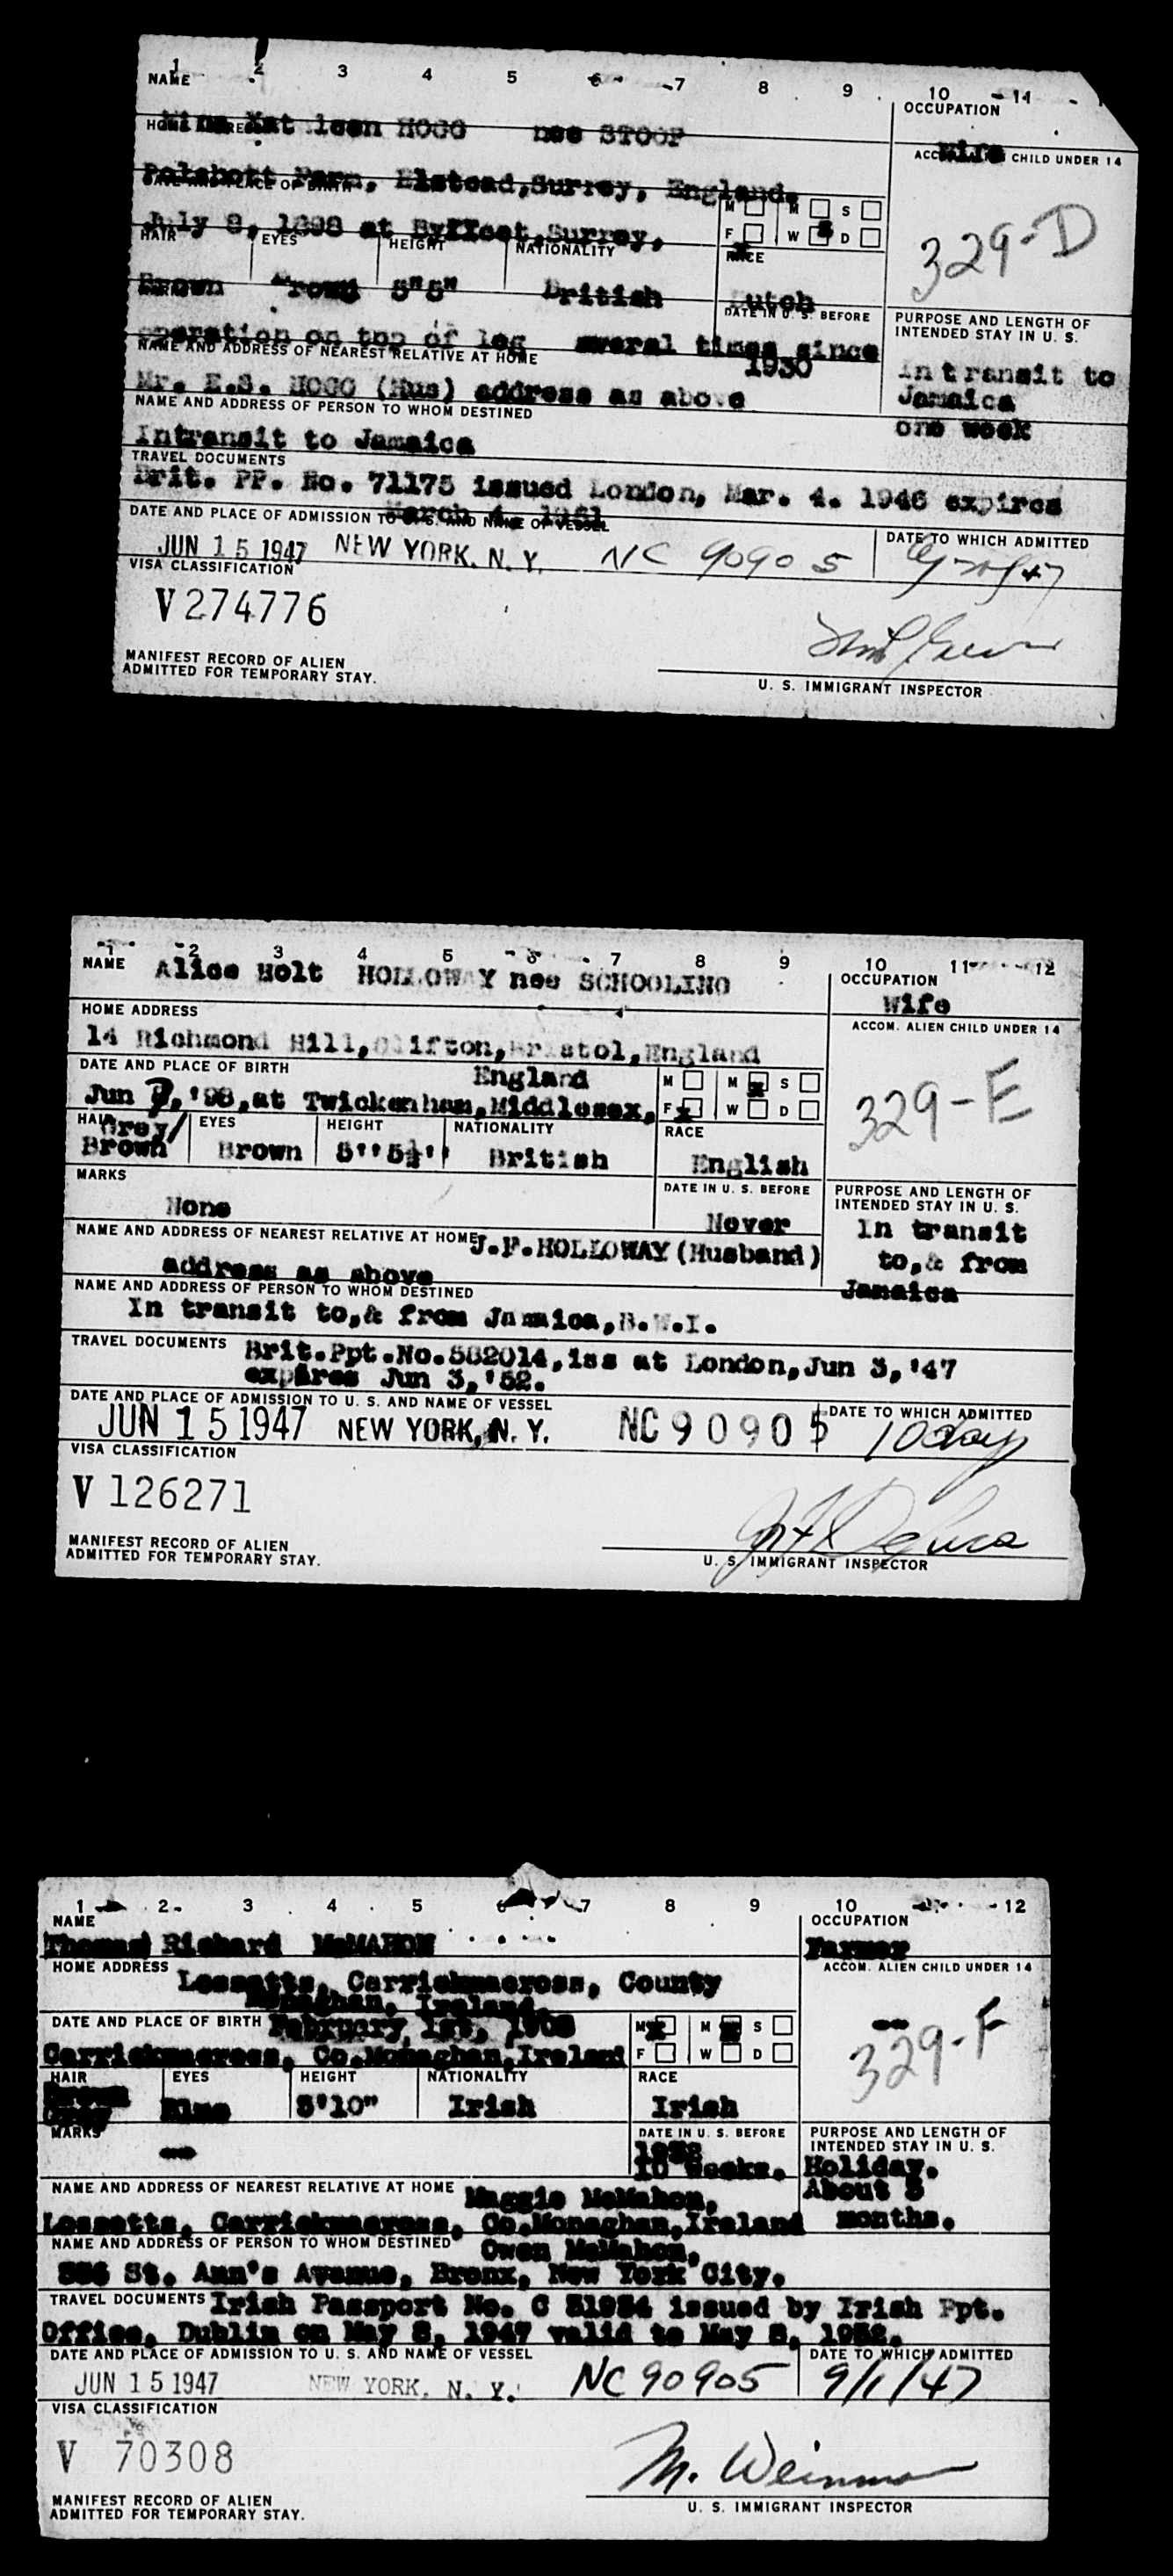 1 2 3 4 5 6 7 8 9 10 11
NAME OCCUPATION
HOGG nee STOOP Wife
HOME ADDRESS ACCOM. ALIEN CHILD UNDER 14
Polshott Farm, Elstead,Surrey, England.
DATE AND PLACE OF BIRTH
M M S
July 8, 1898 at Byfleet,Surrey,
F x W D
329-D
HAIR EYES HEIGHT NATIONALITY RACE
Brown Brown 5"5" British Dutch
DATE IN U. S. BEFORE PURPOSE AND LENGTH OF
INTENDED STAY IN U. S.
operation on top of leg several times since
1930
NAME AND ADDRESS OF NEAREST RELATIVE AT HOME
In transit to
Mr. E.S. HOGG (Hus) address as above Jamaica
one week
NAME AND ADDRESS OF PERSON TO WHOM DESTINED
Intransit to Jamaica
TRAVEL DOCUMENTS
Brit. PP. No. 71175 issued London, Mar. 4. 1946 expires
March 4, 1951
DATE AND PLACE OF ADMISSION TO U. S. AND NAME OF VESSEL DATE TO WHICH ADMITTED
JUN 15 1947 NEW YORK, N. Y. NC 90905
VISA CLASSIFICATION
V274776
MANIFEST RECORD OF ALIEN
ADMITTED FOR TEMPORARY STAY.
U. S. IMMIGRANT INSPECTOR
1 2 3 4 5 6 7 8 9 10 11 12
NAME Alice Holt HOLLOWAY nee SCHOOLING OCCUPATION
Wife
HOME ADDRESS ACCOM. ALIEN CHILD UNDER 14
14 Richmond Hill,Clifton,Bristol,England
DATE AND PLACE OF BIRTH England M M x S
Jun 7,'98,at Twickenham,Middlesex, F x W D
329-E
HAIR EYES HEIGHT NATIONALITY RACE
Grey/
Brown Brown 5''5½'' British English
MARKS DATE IN U. S. BEFORE PURPOSE AND LENGTH OF
INTENDED STAY IN U. S.
None Never In transit
NAME AND ADDRESS OF NEAREST RELATIVE AT HOME J.F.HOLLOWAY(Husband) to,& from
address as above Jamaica
NAME AND ADDRESS OF PERSON TO WHOM DESTINED
In transit to,& from Jamaica,B.W.I.
TRAVEL DOCUMENTS Brit.Ppt.No.582014,iss at London,Jun 3,'47
expires Jun 3,'52.
DATE AND PLACE OF ADMISSION TO U. S. AND NAME OF VESSEL DATE TO WHICH ADMITTED
JUN 15 1947 NEW YORK, N. Y. NC 90905 10 days
VISA CLASSIFICATION
V 126271
MANIFEST RECORD OF ALIEN
ADMITTED FOR TEMPORARY STAY.
U. S. IMMIGRANT INSPECTOR
1 2 3 4 5 6 7 8 9 10 12
NAME OCCUPATION
Thomas Richard McMAHON Farmer
HOME ADDRESS ACCOM. ALIEN CHILD UNDER 14
Lossetts, Carrickmacross, County
Monaghan, Ireland.
DATE AND PLACE OF BIRTH February 1st, M x M x S
Carrickmacross, Co.Monaghan,Ireland F W D
329-F
HAIR EYES HEIGHT NATIONALITY RACE
Brown
Grey Blue 5'10" Irish Irish
MARKS DATE IN U. S. BEFORE PURPOSE AND LENGTH OF
INTENDED STAY IN U. S.
10 Weeks. Holiday.
NAME AND ADDRESS OF NEAREST RELATIVE AT HOME Maggie McMahon, About 3
Lossetts, Carrickmacross, Co.Monaghan,Ireland months.
NAME AND ADDRESS OF PERSON TO WHOM DESTINED Owen McMahon,
St. Ann's Avenue, Bronx, New York City.
TRAVEL DOCUMENTS Irish Passport No. issued by Irish Ppt.
Office, Dublin on May 8, 1947 valid to May 8, 1952.
DATE AND PLACE OF ADMISSION TO U. S. AND NAME OF VESSEL DATE TO WHICH ADMITTED
JUN 15 1947 NEW YORK, N. Y. NC 90905 9/1/47
VISA CLASSIFICATION
V 70308
M. Weinman
MANIFEST RECORD OF ALIEN
ADMITTED FOR TEMPORARY STAY.
U. S. IMMIGRANT INSPECTOR